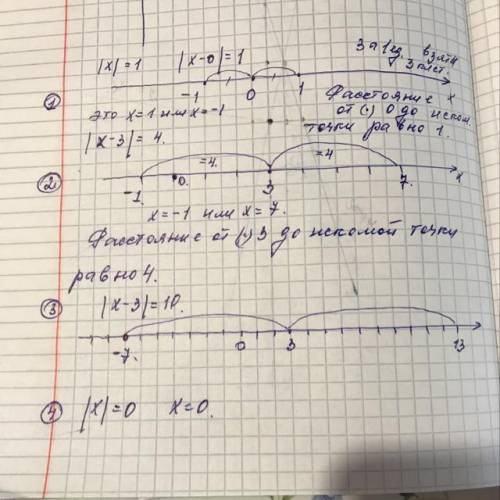 |x|=1 |x-0|=1
-1 0 1 x
①
это x=1 или x=-1
Расстояние
от (·) 0 до иском.
точки равно 1.
|x-3|=4.
② =4. =4
-1 0. 3 7. x
x=-1 или x=7.
Расстояние от (·) 3 до искомой точки
равно 4.
③ |x-3|=10.
-7. 0 3 13
④ |x|=0 x=0.